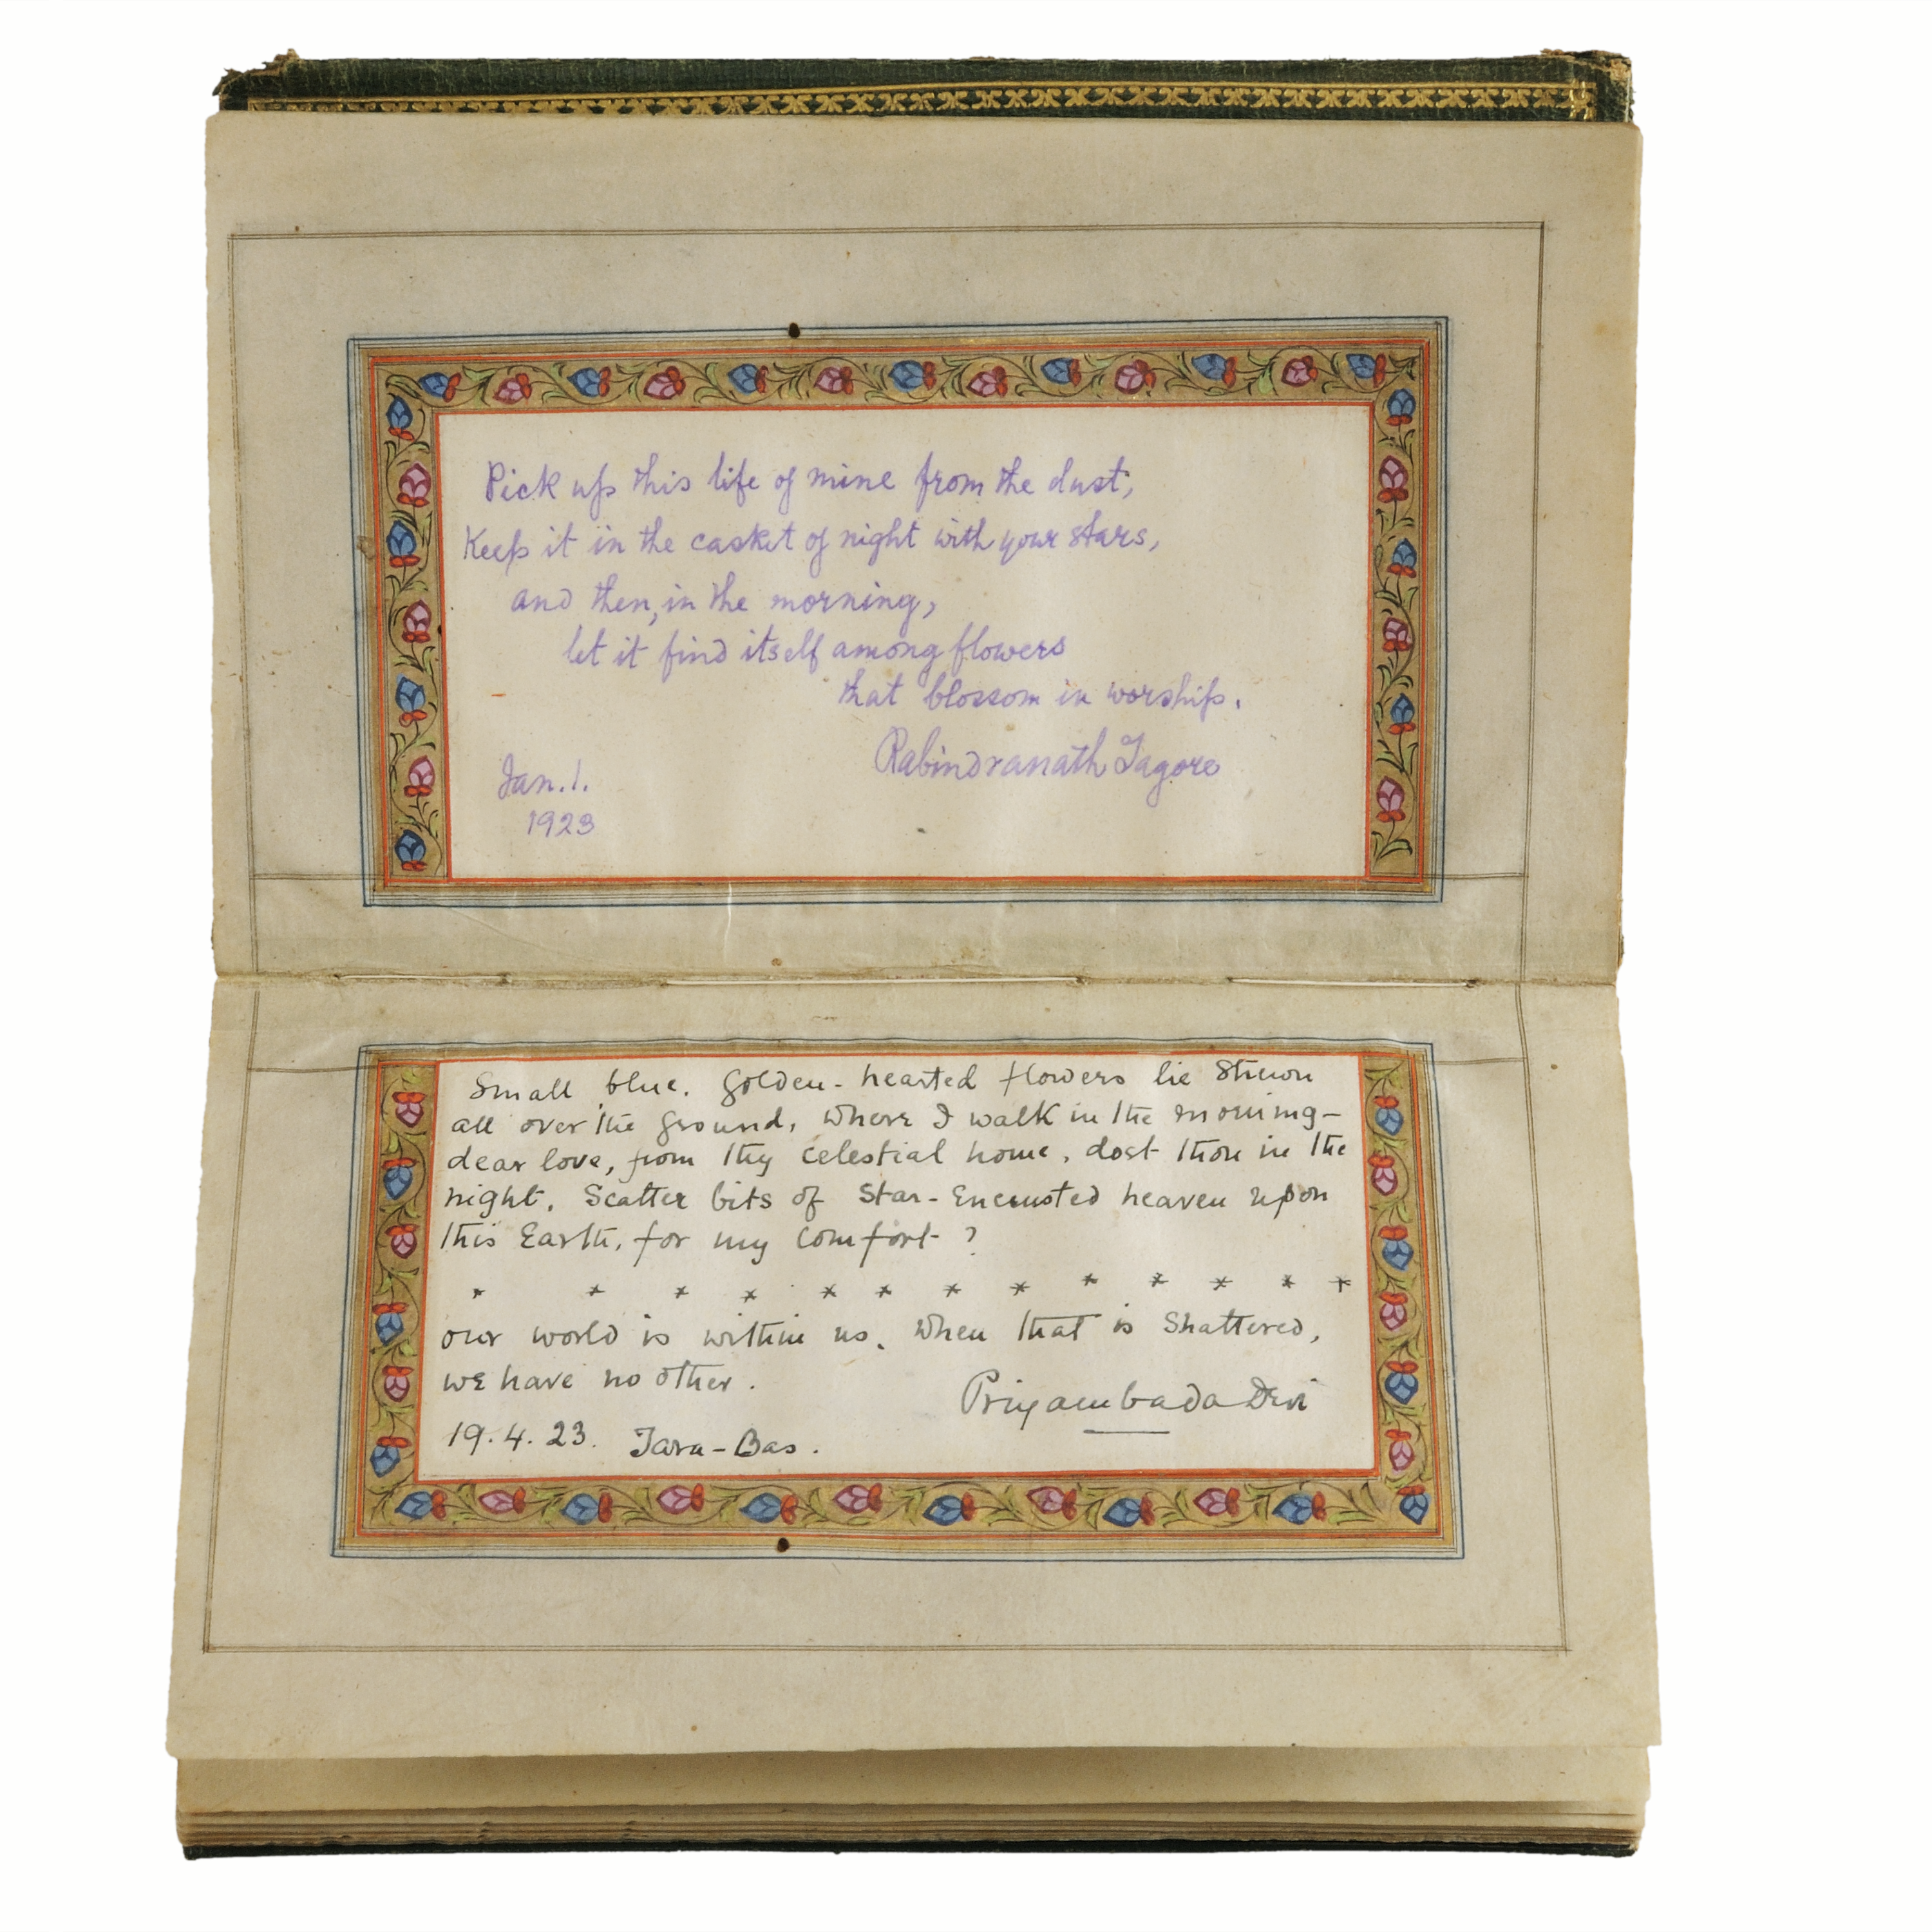 Pick up this life of mine from the dust,
Keep it in the casket of night with your stars,
and then, in the morning,
let it find itself among flowers
that blossom in worship.
Rabindranath Tagore
Jan. 1.
1923
Small blue. golden-hearted flowers lie strewn
all over the ground, where I walk in the morning—
dear love, from thy celestial home, dost thou in the
night. Scatter bits of Star-Encrusted heaven upon
this Earth, for my comfort ?
* * * * * * * * * * * * *
our world is within us. when that is Shattered,
we have no other.
Priyambada Devi
19.4.23. Tara-Bas.